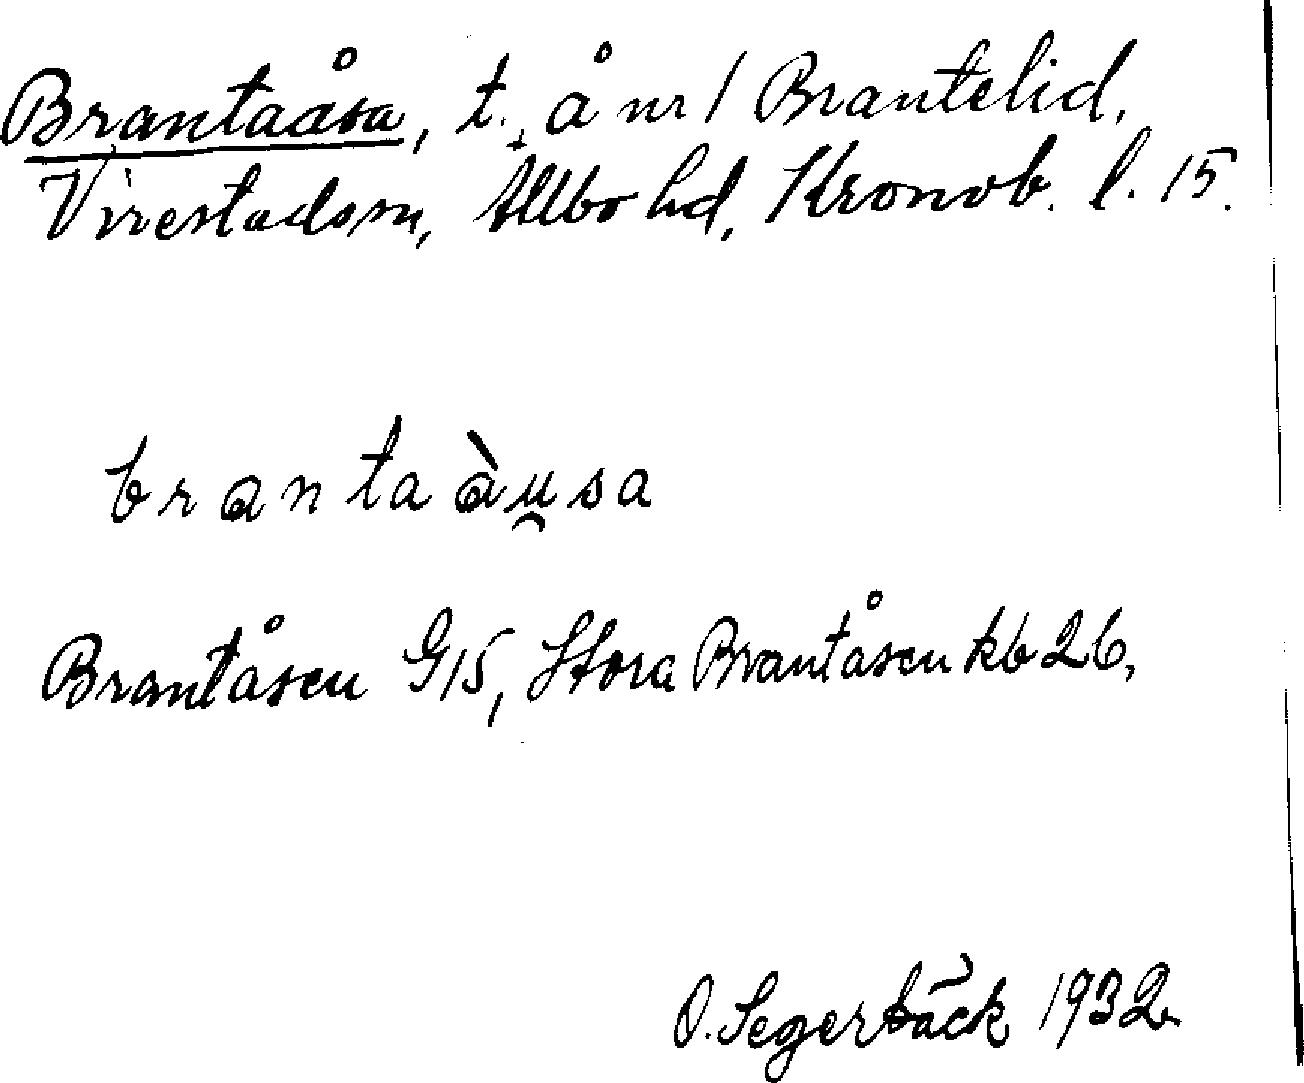 Brantaåsa, t., å nr 1 Brantelid,
Virestads sn, Allbo hd, Kronob. l. 15.
branta àu̯sa
Brantåsen G15, Stora Brantåsen kb 26,
O. Segerbäck 1932.